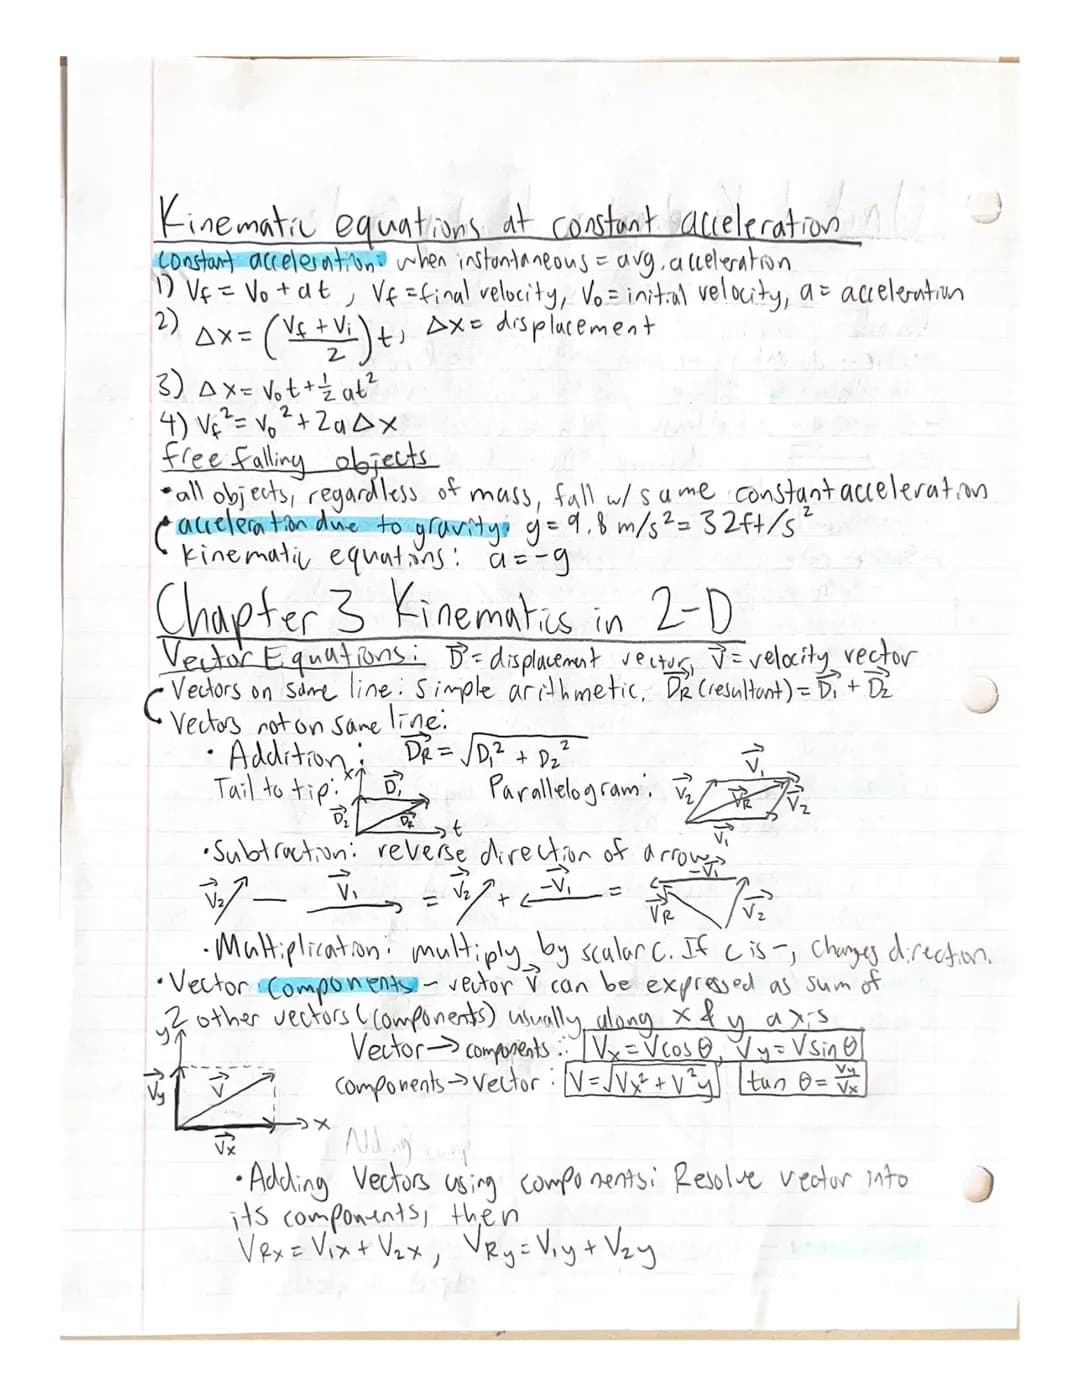 Kinematic equations at constant acceleration
constant acceleration: when instantaneous = avg. acceleration
1) Vf = V₀ + at, Vf = final velocity, V₀ = initial velocity, a = acceleration
2) Δx = ((Vf + Vi)/2) t, Δx = displacement
3) Δx = V₀t + ½ at²
4) Vf² = V₀² + 2aΔx
free falling objects
• all objects, regardless of mass, fall w/ same constant acceleration
• acceleration due to gravity: g = 9.8 m/s² = 32ft/s²
kinematic equations: a = -g
Chapter 3 Kinematics in 2-D
Vector Equations: D⃗ = displacement vector, V⃗ = velocity vector
Vectors on same line: simple arithmetic. D⃗R (resultant) = D⃗₁ + D⃗₂
Vectors not on same line:
• Addition: D⃗R = √(D₁² + D₂²)
Tail to tip: x D⃗₁ D⃗₂ D⃗R t Parallelogram: V⃗₂ V⃗₁ V⃗R V⃗₂ V⃗₁
• Subtraction: reverse direction of arrow
V⃗₂ - V⃗₁ = V⃗₂ + -V⃗₁ = -V⃗₁ V⃗R V⃗₂
• Multiplication: multiply by scalar c. If c is -, changes direction.
• Vector components - vector V⃗ can be expressed as sum of
2 other vectors (components) usually along x & y axis
y V⃗y V⃗ V⃗x x
Vector → components: Vx = Vcosθ, Vy = Vsinθ
components → vector: V = √(Vx² + V²y) tan θ = Vy/Vx
Adding comp
• Adding Vectors using components: Resolve vector into
its components, then
VRx = V₁x + V₂x, VRy = V₁y + V₂y